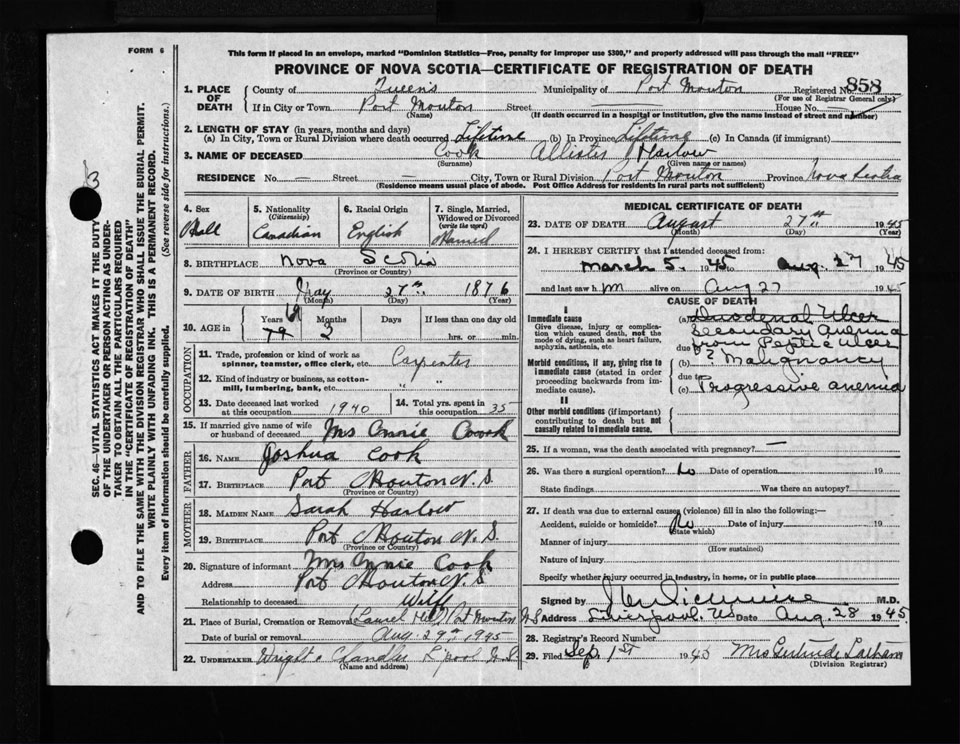 FORM 6
This form if placed in an envelope, marked "Dominion Statistics—Free, penalty for improper use $300," and properly addressed will pass through the mail "FREE"
PROVINCE OF NOVA SCOTIA—CERTIFICATE OF REGISTRATION OF DEATH
1. PLACE OF DEATH County of Queens Municipality of Port Mouton Registered No. 858
(For use of Registrar General only)
If in City or Town Port Mouton Street — House No. —
(Name) (If death occurred in a hospital or institution, give the name instead of street and number)
2. LENGTH OF STAY (in years, months and days)
(a) In City, Town or Rural Division where death occurred Lifetime (b) In Province Lifetime (c) In Canada (if immigrant)
3. NAME OF DECEASED Cook Allister Harlow
(Surname) (Given name or names)
RESIDENCE No. — Street — City, Town or Rural Division Port Mouton Province Nova Scotia
(Residence means usual place of abode. Post Office Address for residents in rural parts not sufficient)
4. Sex Male
5. Nationality (Citizenship) Canadian
6. Racial Origin English
7. Single, Married, Widowed or Divorced (write the word) Married
8. BIRTHPLACE Nova Scotia
(Province or Country)
9. DATE OF BIRTH May 27th 1876
(Month) (Day) (Year)
10. AGE in Years 69 79 Months 3 Days If less than one day old
hrs. or min.
OCCUPATION
11. Trade, profession or kind of work as spinner, teamster, office clerk, etc. Carpenter
12. Kind of industry or business, as cotton-mill, lumbering, bank, etc. " "
13. Date deceased last worked at this occupation 1940
14. Total yrs. spent in this occupation 35
15. If married give name of wife or husband of deceased Mrs Annie Coook
FATHER
16. NAME Joshua Cook
17. BIRTHPLACE Port Mouton N.S
(Province or Country)
MOTHER
18. MAIDEN NAME Sarah Harlow
19. BIRTHPLACE Port Mouton N.S.
(Province or Country)
20. Signature of informant Mrs Annie Cook
Address Port Mouton N.S
Relationship to deceased Wife
21. Place of Burial, Cremation or Removal (Laurel Hill) Port Mouton
Date of burial or removal Aug. 29th 1945
22. UNDERTAKER Wright & Chandler L'pool N.S.
(Name and address)
MEDICAL CERTIFICATE OF DEATH
23. DATE OF DEATH August 27th 1945
(Month) (Day) (Year)
24. I HEREBY CERTIFY that I attended deceased from:
March 5. 1945 to Aug. 27 1945
and last saw h im alive on Aug 27 1945
CAUSE OF DEATH
I
Immediate cause (a) Duodenal Ulcer
Give disease, injury or complication which caused death, not the mode of dying, such as heart failure, asphyxia, asthenia, etc.
Secondary Anemia
due to from Peptic ulcer
Morbid conditions, if any, giving rise to immediate cause (stated in order proceeding backwards from immediate cause).
(b) ? Malignancy
due to
(c) Progressive anemia
II
Other morbid conditions (if important) contributing to death but not causally related to immediate cause.
25. If a woman, was the death associated with pregnancy? —
26. Was there a surgical operation? No Date of operation 19
State findings Was there an autopsy?
27. If death was due to external causes (violence) fill in also the following:—
Accident, suicide or homicide? No Date of injury 19
(State which)
Manner of injury
(How sustained)
Nature of injury
Specify whether injury occurred in industry, in home, or in public place
Signed by M.D.
Address Liverpool, NS Date Aug. 28 1945
28. Registrar's Record Number
29. Filed Sep. 1st 1945 Mrs Gertrude Latham
(Division Registrar)
SEC. 46—VITAL STATISTICS ACT MAKES IT THE DUTY
OF THE UNDERTAKER OR PERSON ACTING AS UNDER-
TAKER TO OBTAIN ALL THE PARTICULARS REQUIRED
IN THE "CERTIFICATE OF REGISTRATION OF DEATH"
AND TO FILE THE SAME WITH THE DIVISION REGISTRAR WHO SHALL ISSUE THE BURIAL PERMIT.
WRITE PLAINLY WITH UNFADING INK. THIS IS A PERMANENT RECORD.
Every item of Information should be carefully supplied. (See reverse side for instructions.)